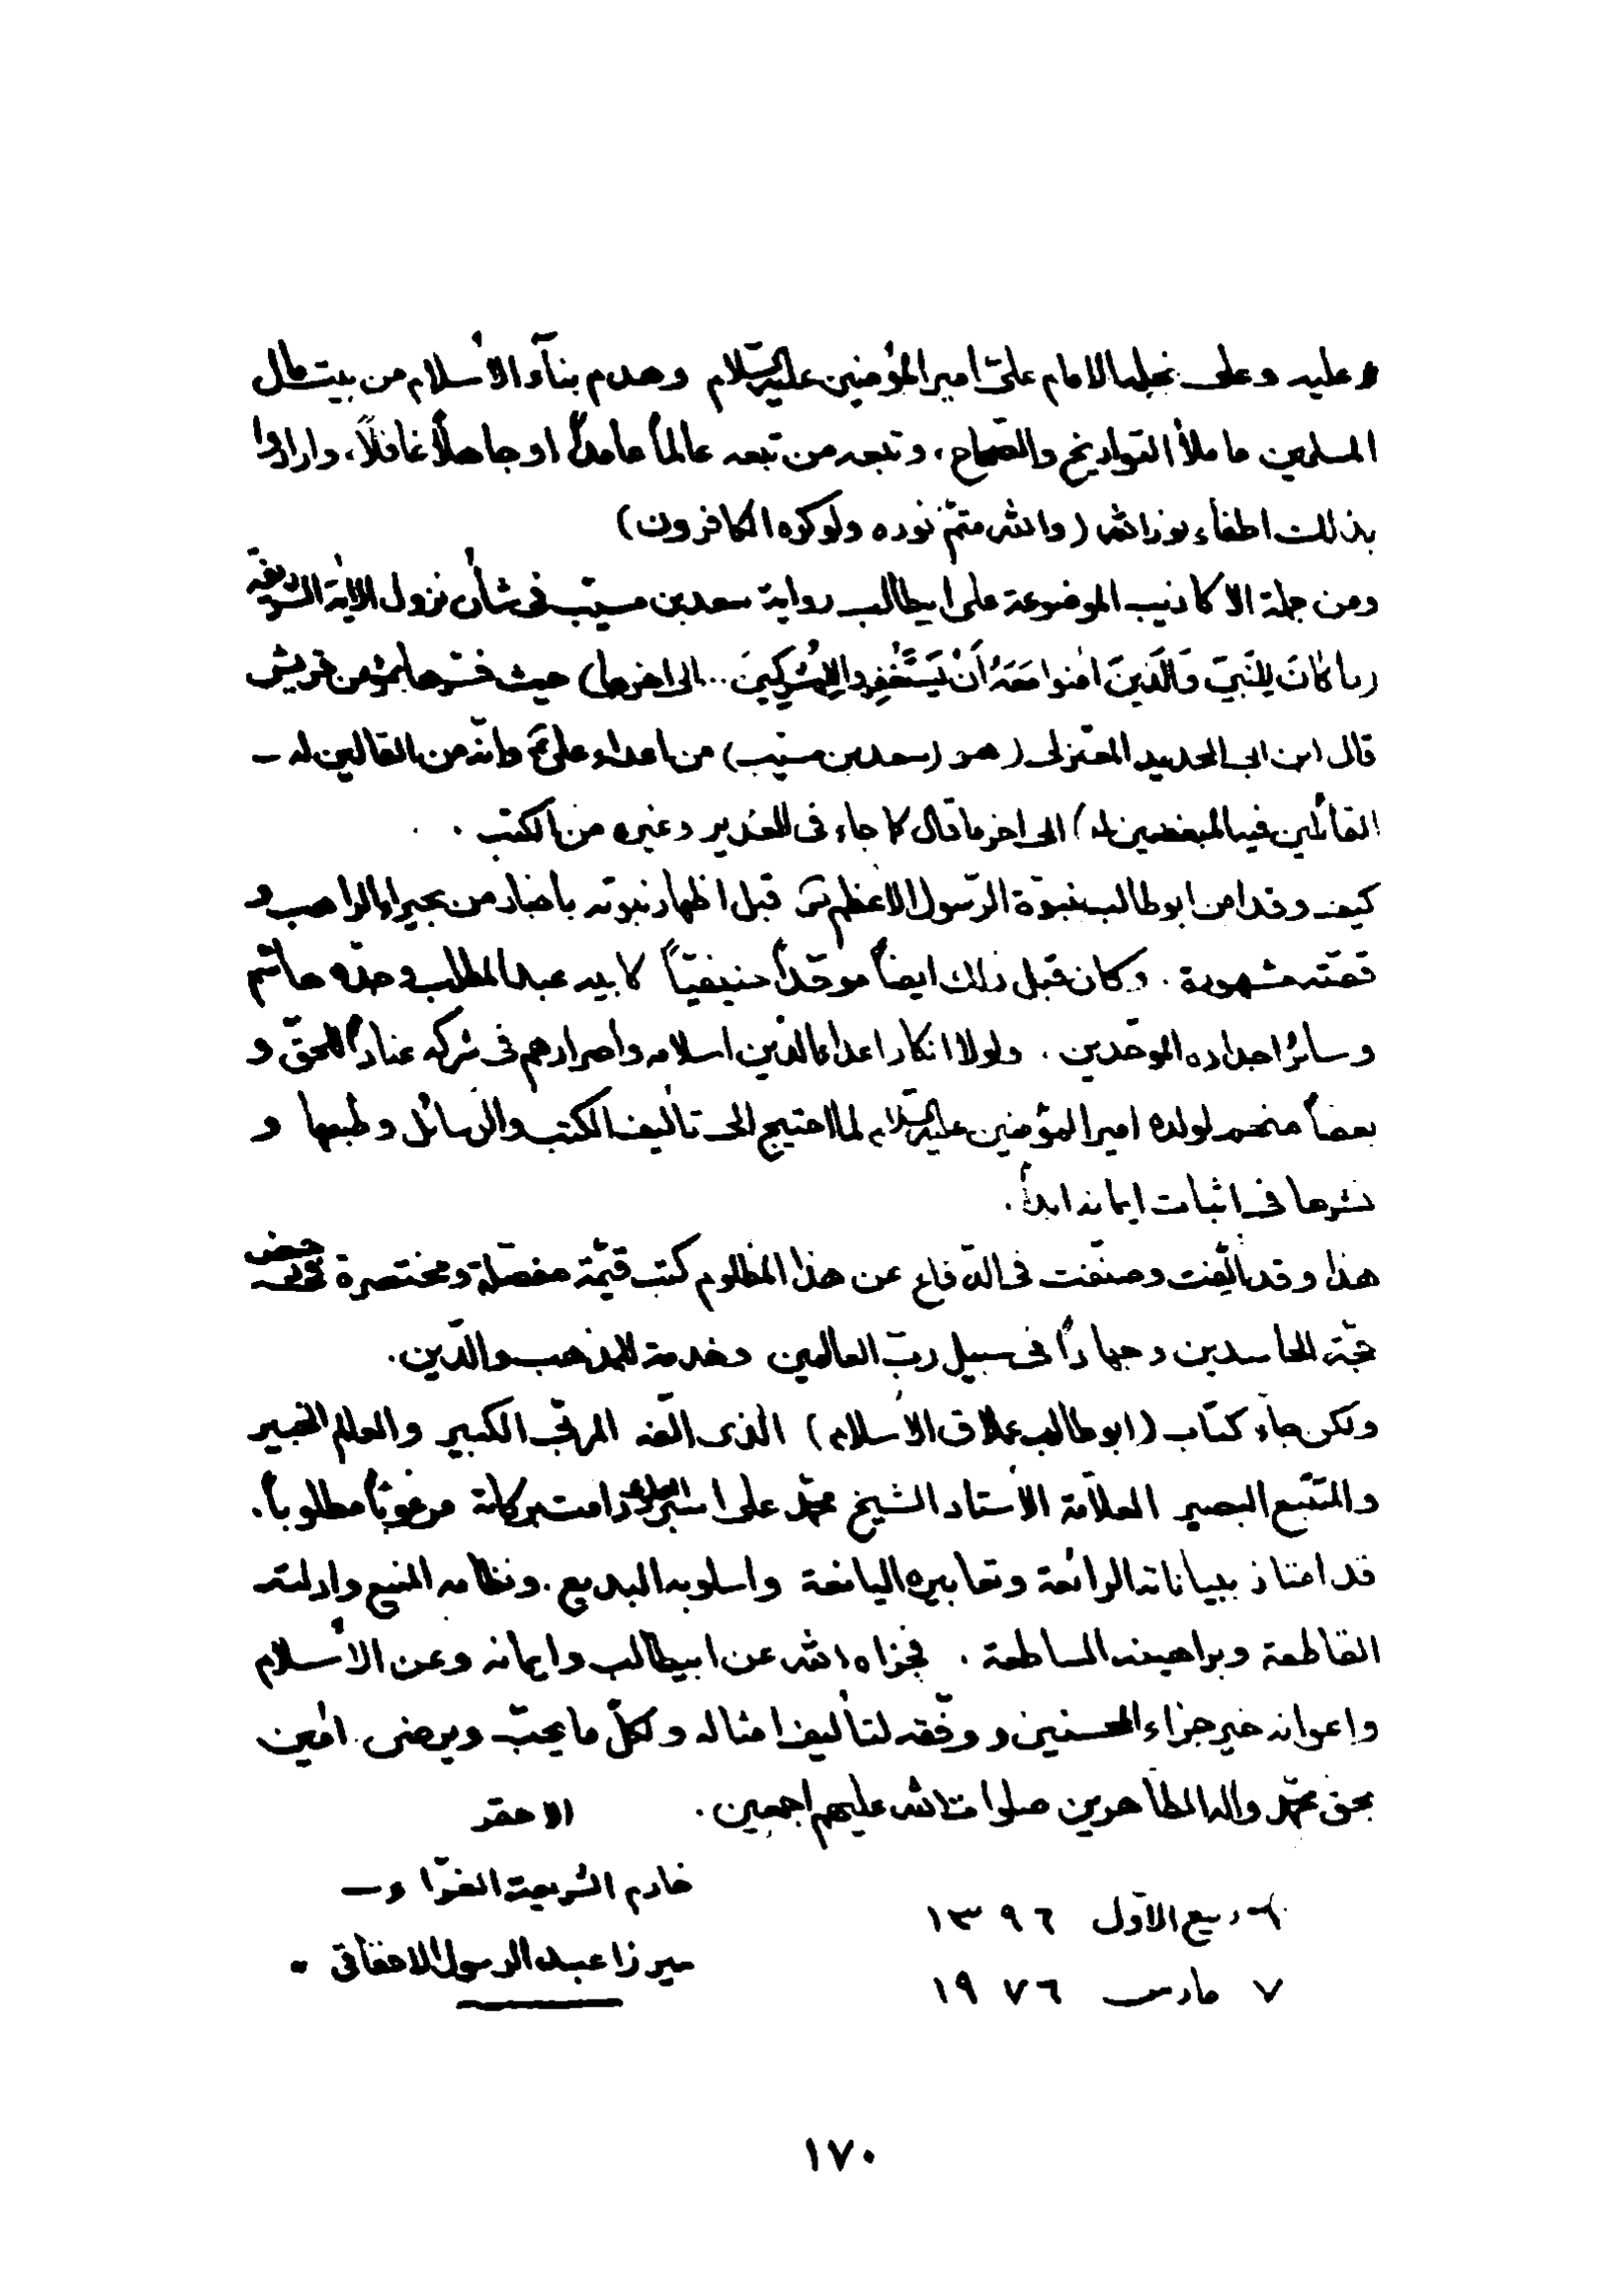 وعليه وعلى نجله الامام علىّ امير المؤمنين عليه السّلام وهدم بنآء الأسلام من بيت مال
المسلمين ما ملأ التواريخ والصّحاح، وتبعه من تبعه عالماً عامداً او جاهلاً غافلاً، وارادوا
بذلك اطفاء نور الله (والله متمّ نوره ولو كره الكافرون)
ومن جملة الاكاذيب الموضوعة على ابيطالب رواية سعد بن مسيّب فى شأن نزول الاية الشريفة
(ما كَانَ لِلنَّبِيّ وَالَّذينَ امنوا مَعَهُ اَنْ يَسْتَغْفِروا لِلْمُشْرِكينَ... الى اخرها) حيث فسّرها من قريش
قال ابن ابى الحديد المعتزلى (هو (سعد بن مسيّب) من اعداء علىّ ع وانّه من القالين له ـ
القائلين فيه المبغضين له) الى اخر ما قال كما جاء فى الغدير وغيره من الكتب .
كيف وقد امن ابو طالب بنبوّة الرّسول الاعظم ص قبل اظهار نبوّته باخبار من بحيراء الراهب و
قصّته مشهورة . وكان قبل ذلك ايضاً موحّداً حنيفيّاً كابيه عبد المطلب وجدّه هاشم
وسائر اجداده الموحّدين . ولولا انكار اعداء الدّين اسلامه واصرارهم فى شركه عناداً للحقّ و
بعضاً منهم لولده امير المؤمنين عليه السّلام لما احتيج الى تأليف الكتب والرسائل وطبعها و
نشرها فى اثبات ايمانه ابداً .
هذا وقد الّفت وصنّفت فى الدّفاع عن هذا المظلوم كتب قيّمة مفصّلة ومختصرة
حجّة الحاسدين وجهاداً فى سبيل ربّ العالمين وخدمة للمذهب والدّين.
ولكن جاء كتاب (ابو طالب عملاق الأسلام) الّذى الّفه المربّى الكبير والعالم الخبير
والمتتبع البصير العلاّمة الأستاد الشيخ محمّد على دامت بركاته مرغوباً مطلوباً.
قد امتاز ببياناته الرائعة وتعابيره اليانعة واسلوبه البديع . ونظامه المنيع وادلّته
القاطعة وبراهينه الساطعة . فجزاه الله عن ابيطالب وايمانه وعن الأسلام
واعوانه خير جزاء المحسنين ووفّقه لتأليف امثاله ولكلّ ما يحبّ ويرضى . امين
بحق محمّد واله الطاهرين صلوات الله عليهم اجمعين . الاحقر
خادم الشريعة الغرّاء ـ
ميرزا عبد الرسول الاحقاقى .
ربيع الاول ١٣٩٦
٧ مارس ١٩٧٦
١٧٠